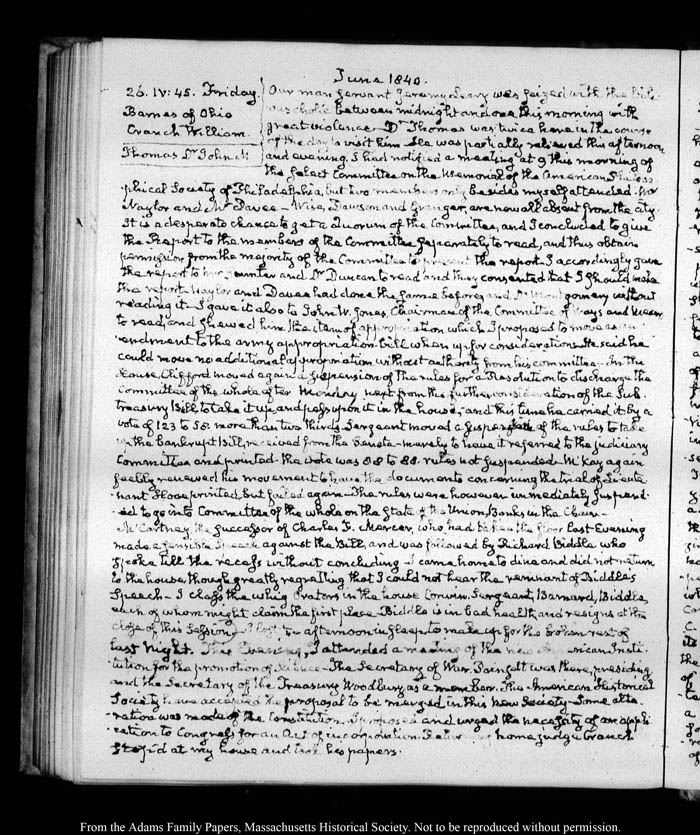 June 1840.
26. IV:45. Friday.
Barnes of Ohio
Cranch William.
Thomas Dr John M
Our man servant Jeremy Leary was seized with the bili-
ous cholic between midnight and one this morning with
great violence. Dr Thomas was twice here in the course
of the day to visit him He was partially relieved this afternoon
and evening. I had notified a meeting at 9 this morning of
the Select Committee on the Memorial of the American Philoso-
phical Society of Philadelphia, but two members only besides myself attended. Mr
Naylor and Mr Davee – Wise, Dawson and Granger, are now all absent from the city.
It is a desperate chance to get a Quorum of the Committee, and I concluded to give
the Report to the members of the Committee separately to read, and thus obtain
permission from the majority of the Committee to present the report. I accordingly gave
the report to Hunter and Dr Duncan to read and they consented that I should make
the report. Naylor and Davee had done the same before, and Dr Montgomery without
reading it. I gave it also to John W. Jones, Chairman of the Committee of Ways and Means
to read, and shewed him the item of appropriation which I proposed to move as an
endment to the army appropriation bill when up for consideration. He said he
could move no additional appropriation without authority from his committee – In the
House, Clifford moved again a suspension of the rules for a Resolution to discharge the
Committee of the whole after Monday next from the further consideration of the Sub-
treasury Bill to take it up and pass upon it in the house; and this time he carried it by a
vote of 123 to 58 more than two thirds. Sergeant moved a suspension of the rules to take
up the bankrupt Bill, received from the Senate – merely to have it referred to the judiciary
Committee and printed – the vote was 88 to 80. rules not suspended – McKay again
feebly renewed his movement to have the documents concerning the trial of Lieute-
nant Hooe, printed, but failed again – The rules were however immediately suspend-
ed to go into Committee of the whole on the State of the Union, Banks in the Chair –
McCartney, the successor of Charles F. Mercer, who had taken the floor last Evening
made a sensible Speech against the Bill, and was followed by Richard Biddle who
spoke till the recess without concluding – I came home to dine and did not return
to the house, though greatly regretting that I could not hear the remnant of Biddle's
Speech – I class the whig Orators in the house Corwin, Sergeant, Barnard, Biddle,
each of whom might claim the first place – Biddle is in bad health, and resigns at the
close of this Session. I lost the afternoon in sleep to make up for the broken rest of
last Night. This Evening, I attended a meeting of the new American Insti-
tution for the promotion of Science – The Secretary of War Poinsett was there, presiding
and the Secretary of the Treasury Woodbury as a member. The American Historical
Society have accepted the proposal to be merged in this new Society – Some alte-
ration was made of the Constitution. I proposed and urged the necessity of an appli-
cation to Congress for an Act of incorporation. Returning home judge Cranch
stop'd at my house and took his papers.
From the Adams Family Papers, Massachusetts Historical Society. Not to be reproduced without permission.